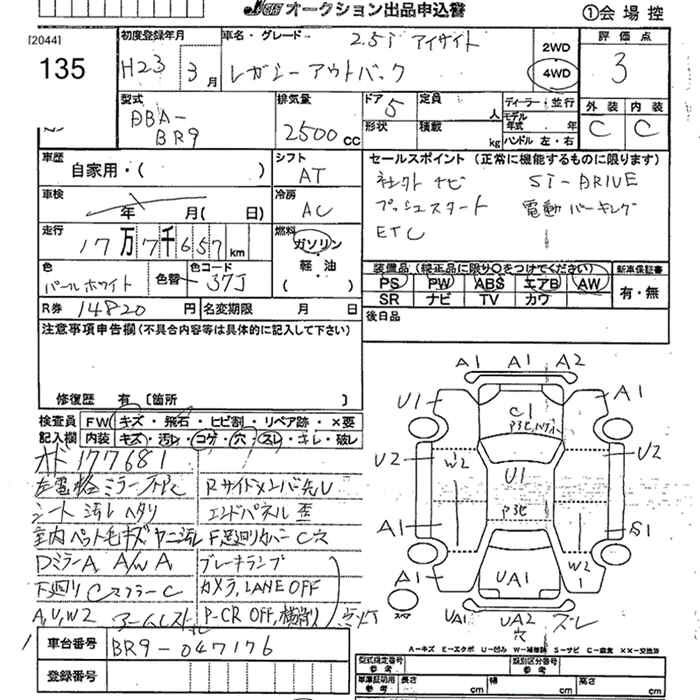 オークション出品申込書
①会場控
[2044]
135
初度登録年月
H23 3月
車名・グレード
2.5i アイサイト
レガシーアウトバック
2WD
4WD
評価点
3
外装 内装
C C
型式
DBA-
BR9
排気量
2500cc
ドア 5
定員 人
形状
積載 kg
ディーラー・並行
モデル年式 年
ハンドル 左・右
車歴
自家用・( )
シフト
AT
車検
年 月( 日)
冷房
AC
走行
17万7千657km
燃料
ガソリン
軽・油
( )
色
パールホワイト
色替
色コード
37J
R券 14820円
名変期限 月 日
セールスポイント(正常に機能するものに限ります)
ナビ SI-DRIVE
プッシュスタート 電動パーキング
ETC
装備品(純正品に限り○をつけてください)
新車保証書
PS PW ABS エアB AW
SR ナビ TV カワ
有・無
後日品
注意事項申告欄(不具合内容等は具体的に記入して下さい)
修復歴 有〔箇所 〕
検査員記入欄
FW キズ・飛石・ヒビ割・リペア跡・×要
内装 キズ・汚レ・コゲ・穴・スレ・キレ・破レ
オド177681
シート汚レ ヘタリ
エンドパネル歪
DミラーA A/W A
ブレーキランプ
下廻りC マフラーC
カメラ, LANE OFF
A,U,W2 アームレスト
P-CR OFF, 横滑り
点灯
車台番号 BR9-047176
登録番号
A1 A1 A2
U1 A1
C1
U2 W2 U1 U2
A1 S1
A1 UA1 W2
UA1 UA2 ズレ
穴
A=キズ E=エクボ U=凹み W=補修跡 S=サビ C=腐食 XX=交換済
型式指定番号 参考
類別区分番号 参考
車庫証明用 参考
長さ cm 幅 cm 高さ cm